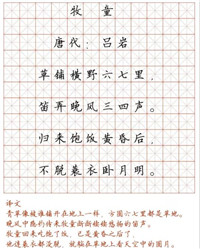 牧童
唐代：吕岩
草铺横野六七里，
笛弄晚风三四声。
归来饱饭黄昏后，
不脱蓑衣卧月明。
译文
青草像被谁铺开在地上一样，方圆六七里都是草地。
晚风中隐约传来牧童断断续续悠扬的笛声。
牧童回来吃饱了饭，已是黄昏之后了，
他连蓑衣都没脱，就躺在草地上看天空中的圆月。